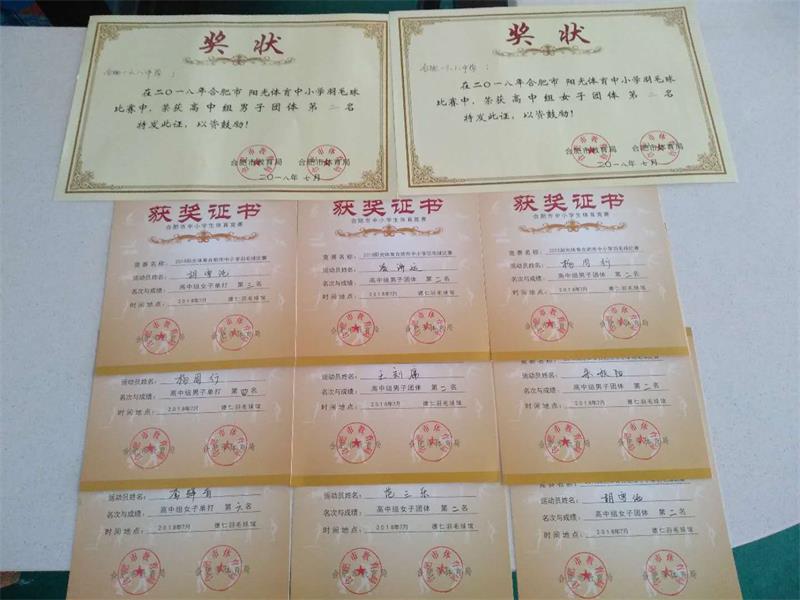 奖状
合肥一六八中学：
在二〇一八年合肥市 阳光体育中小学羽毛球
比赛中，荣获高中组男子团体 第二名
特发此证，以资鼓励！
合肥市教育局 合肥市体育局
二〇一八年七月
奖状
合肥一六八中学：
在二〇一八年合肥市 阳光体育中小学羽毛球
比赛中，荣获高中组女子团体 第二名
特发此证，以资鼓励！
合肥市教育局 合肥市体育局
二〇一八年七月
获奖证书
合肥市中小学生体育竞赛
竞赛名称：2018阳光体育合肥市中小学羽毛球比赛
运动员姓名：
名次与成绩：高中组女子单打 第三名
时间地点：2018年7月 德仁羽毛球馆
获奖证书
合肥市中小学生体育竞赛
竞赛名称：2018阳光体育合肥市中小学羽毛球比赛
运动员姓名：
名次与成绩：高中组男子团体 第二名
时间地点：2018年7月 德仁羽毛球馆
获奖证书
合肥市中小学生体育竞赛
竞赛名称：2018阳光体育合肥市中小学羽毛球比赛
运动员姓名：梅周行
名次与成绩：高中组男子团体 第二名
时间地点：2018年7月 德仁羽毛球馆
运动员姓名：梅周行
名次与成绩：高中组男子单打 第四名
时间地点：2018年7月 德仁羽毛球馆
运动员姓名：
名次与成绩：高中组男子团体 第二名
时间地点：2018年7月 德仁羽毛球馆
运动员姓名：
名次与成绩：高中组男子团体 第二名
时间地点：2018年7月 德仁羽毛球馆
运动员姓名：
名次与成绩：高中组女子单打 第六名
时间地点：2018年7月 德仁羽毛球馆
运动员姓名：范三乐
名次与成绩：高中组女子团体 第二名
时间地点：2018年7月 德仁羽毛球馆
运动员姓名：
名次与成绩：高中组女子团体 第二名
时间地点：2018年7月 德仁羽毛球馆